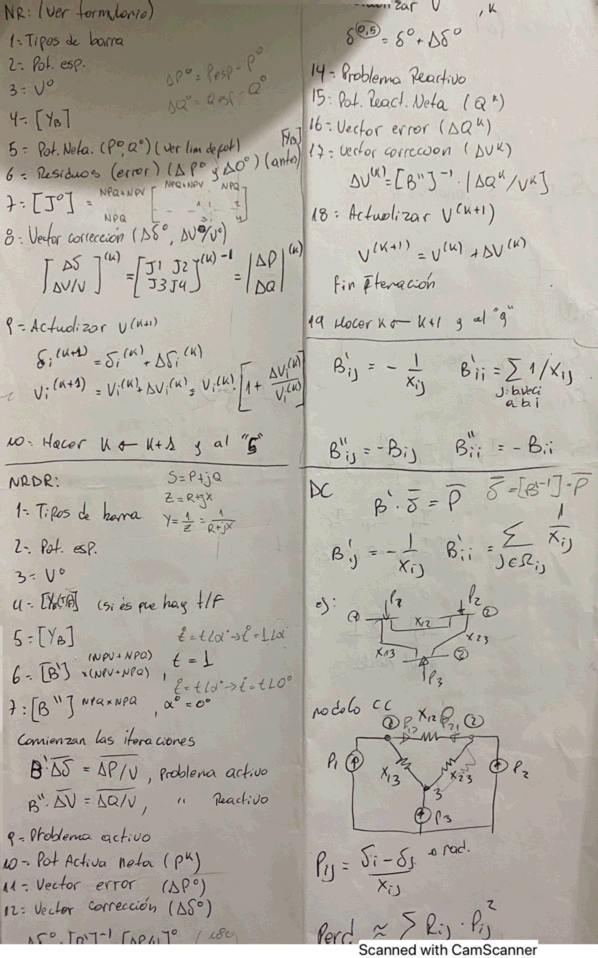 NR: (ver formulario)
1= Tipos de barra
2= Pot. esp.
3= V⁰
ΔP⁰ = Pesp - P⁰
ΔQ⁰ = Qesp - Q⁰
4= [YB]
5= Pot. Neta. (P⁰, Q⁰) (ver lim de pot) [YB]
6= Residuos (error) (ΔP⁰ y ΔQ⁰) (antes)
7= [J⁰] = NPQ+NPV NPQ [ NPQ+NPV NPQ 1 2 3 4 ]
8= Vector corrección (Δδ⁰, ΔV⁰/V⁰)
[Δδ ΔV/V]^(k) = [J1 J2 J3 J4]^(k) -1 = |ΔP ΔQ|^(k)
9= Actualizar V^(k+1)
δi^(k+1) = δi^(k) + Δδi^(k)
Vi^(k+1) = Vi^(k) + ΔVi^(k) = Vi^(k) · [1 + ΔVi^(k)/Vi^(k)]
10= Hacer k ← k+1 y al "5"
NRDR:
S = P+jQ
Z = R+jX
Y = 1/Z = 1/(R+jX)
1= Tipos de barra
2= Pot. esp.
3= V⁰
(si es que hay t/F
5= [YB]
t̄ = t∠α → t̄ = 1∠α
6= [B'] (NPV+NPQ) ×(NPV+NPQ), t = 1
t̄ = t∠α → t̄ = t∠0°
7= [B''] NPQ×NPQ, α° = 0°
Comienzan las iteraciones
B'·Δδ = ΔP/V, Problema activo
B''·ΔV = ΔQ/V, " Reactivo
9= Problema activo
10= Pot Activa neta (P^k)
11= Vector error (ΔP⁰)
12= Vector corrección (Δδ⁰)
δ^(0,5) = δ⁰ + Δδ⁰
14= Problema Reactivo
15= Pot. React. Neta (Q^k)
16= Vector error (ΔQ^k)
17= Vector corrección (ΔV^k)
ΔV^(k) = [B'']^-1 · |ΔQ^k/V^k|
18= Actualizar V^(k+1)
V^(k+1) = V^(k) + ΔV^(k)
Fin Iteración
19 Hacer k ← k+1 y al "9"
B'ij = - 1/Xij B'ii = Σ 1/Xij
B''ij = -Bij B''ii = -Bii
DC B'·δ̄ = P̄ δ̄ = [B'^-1]·P̄
B'ij = - 1/Xij B'ii = Σ j∈Ωij 1/Xij
ej:
P2
X12
②
X13
X23
P3
modelo CC
① P12 X12 P21 ②
P1
X13
X23
P2
3
P3
Pij = (δi - δj)/Xij → rad.
Perd ≈ Σ Rij · Pij²
Scanned with CamScanner